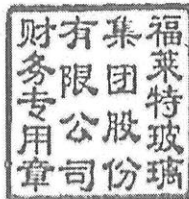 福莱特玻璃
集团股份
有限公司
财务专用章